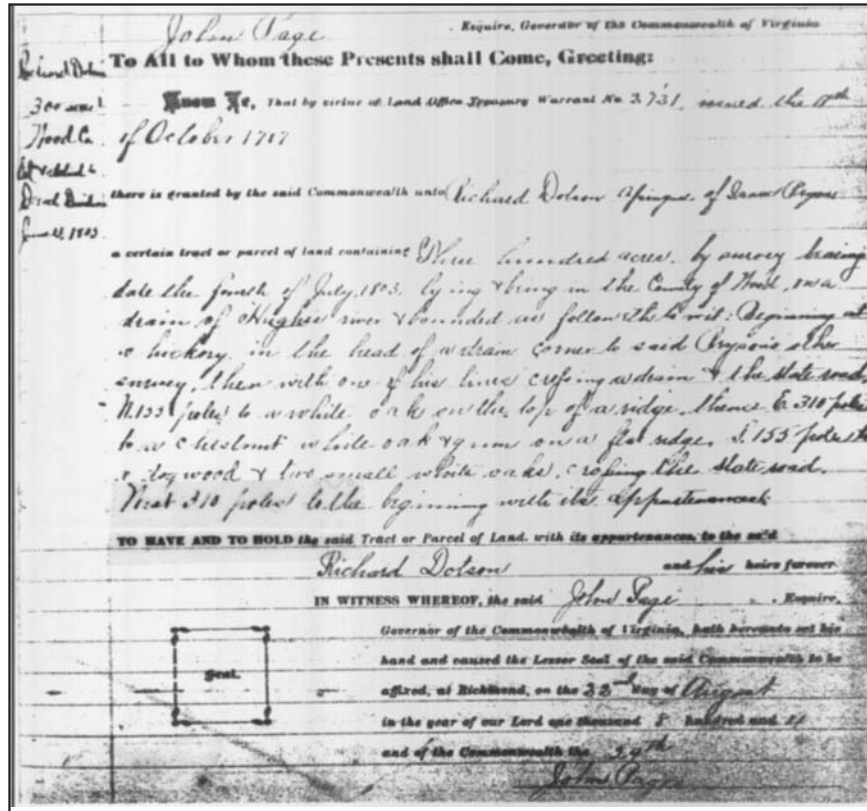 John Page Esquire, Governor of the Commonwealth of Virginia
To All to Whom these Presents shall Come, Greeting:
Richard Dotson
300 acres
Wood Co.
Know Ye, That by virtue of Land Office Treasury Warrant No. 3,731, issued the
of October 1787
there is granted by the said Commonwealth unto Richard Dotson of Isaac
a certain tract or parcel of land containing Three hundred acres by survey bearing
date the fourth of July, 1803, lying & being in the County of Wood, on a
drain of Hughes river & bounded as followeth to wit: Beginning at
a hickory in the head of a drain corner to said Prysons other
survey, then with one of his lines crossing a drain & the state road
N. 155 poles to a white oak on the top of a ridge, thence E 310 poles
to a chestnut white oak & gum on a flat ridge, S. 155 poles to
a dogwood & two small white oaks, crossing the state road.
West 310 poles to the beginning with its appurtenances
TO HAVE AND TO HOLD the said Tract or Parcel of Land, with its appurtenances, to the said
Richard Dotson and his heirs forever
IN WITNESS WHEREOF, the said John Page Esquire,
Governor of the Commonwealth of Virginia, hath hereunto set his
hand and caused the Lesser Seal of the said Commonwealth to be
affixed, at Richmond, on the 22nd day of August
in the year of our Lord one thousand 8 hundred and
and of the Commonwealth the 29th
Seal.
John Page